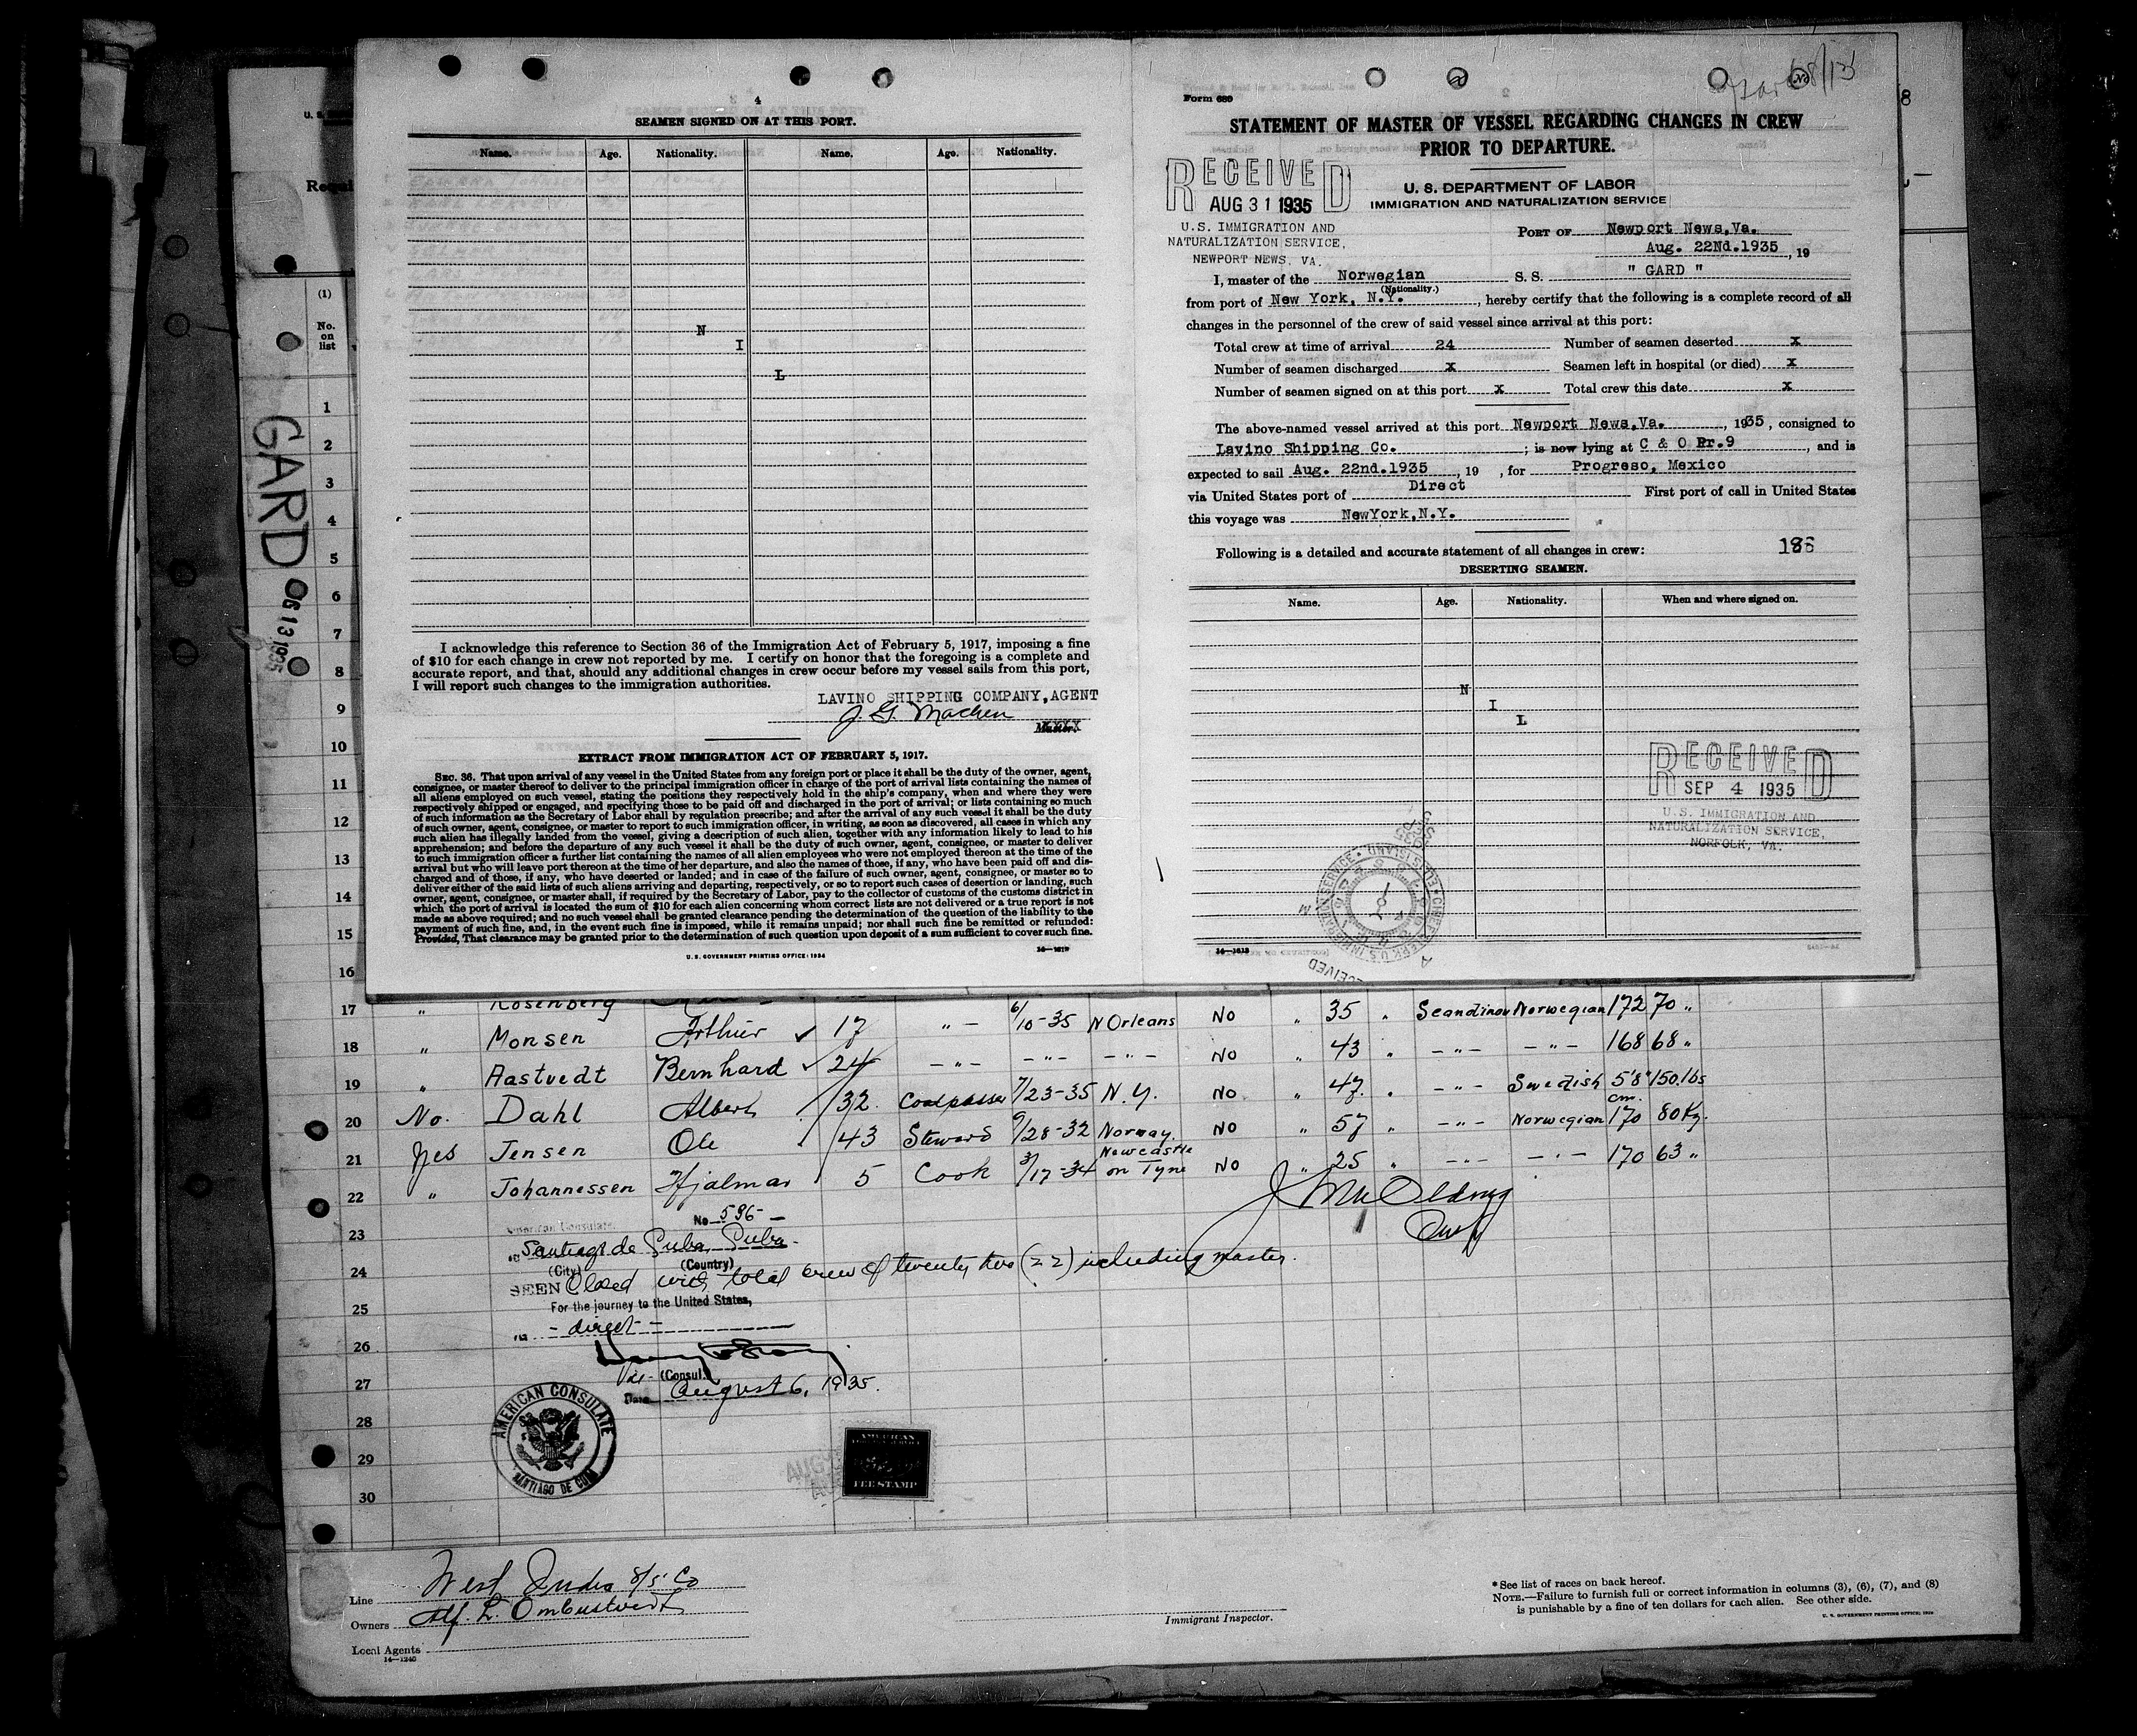 4
SEAMEN SIGNED ON AT THIS PORT.
Name. Age. Nationality. Name. Age. Nationality.
N
I
L
I acknowledge this reference to Section 36 of the Immigration Act of February 5, 1917, imposing a fine
of $10 for each change in crew not reported by me. I certify on honor that the foregoing is a complete and
accurate report, and that, should any additional changes in crew occur before my vessel sails from this port,
I will report such changes to the immigration authorities.
LAVINO SHIPPING COMPANY, AGENT
J. G. Machen
Master.
EXTRACT FROM IMMIGRATION ACT OF FEBRUARY 5, 1917.
SEC. 36. That upon arrival of any vessel in the United States from any foreign port or place it shall be the duty of the owner, agent,
consignee, or master thereof to deliver to the principal immigration officer in charge of the port of arrival lists containing the names of
all aliens employed on such vessel, stating the positions they respectively hold in the ship's company, when and where they were
respectively shipped or engaged, and specifying those to be paid off and discharged in the port of arrival; or lists containing so much
of such information as the Secretary of Labor shall by regulation prescribe; and after the arrival of any such vessel it shall be the duty
of such owner, agent, consignee, or master to report to such immigration officer, in writing, as soon as discovered, all cases in which any
such alien has illegally landed from the vessel, giving a description of such alien, together with any information likely to lead to his
apprehension; and before the departure of any such vessel it shall be the duty of such owner, agent, consignee, or master to deliver
to such immigration officer a further list containing the names of all alien employees who were not employed thereon at the time of the
arrival but who will leave port thereon at the time of her departure, and also the names of those, if any, who have been paid off and dis-
charged and of those, if any, who have deserted or landed; and in case of the failure of such owner, agent, consignee, or master so to
deliver either of the said lists of such aliens arriving and departing, respectively, or so to report such cases of desertion or landing, such
owner, agent, consignee, or master shall, if required by the Secretary of Labor, pay to the collector of customs of the customs district in
which the port of arrival is located the sum of $10 for each alien concerning whom correct lists are not delivered or a true report is not
made as above required; and no such vessel shall be granted clearance pending the determination of the question of the liability to the
payment of such fine, and, in the event such fine is imposed, while it remains unpaid; nor shall such fine be remitted or refunded:
Provided, That clearance may be granted prior to the determination of such question upon deposit of a sum sufficient to cover such fine.
U. S. GOVERNMENT PRINTING OFFICE: 1934
Form 689
STATEMENT OF MASTER OF VESSEL REGARDING CHANGES IN CREW
PRIOR TO DEPARTURE.
U. S. DEPARTMENT OF LABOR
IMMIGRATION AND NATURALIZATION SERVICE
RECEIVED
AUG 31 1935
U.S. IMMIGRATION AND
NATURALIZATION SERVICE,
NEWPORT NEWS, VA.
PORT OF Newport News,Va.
Aug. 22Nd.1935, 19
I, master of the Norwegian S. S. " GARD "
(Nationality.)
from port of New York, N.Y., hereby certify that the following is a complete record of all
changes in the personnel of the crew of said vessel since arrival at this port:
Total crew at time of arrival 24 Number of seamen deserted x
Number of seamen discharged x Seamen left in hospital (or died) x
Number of seamen signed on at this port x Total crew this date x
The above-named vessel arrived at this port Newport News,Va., 1935, consigned to
Lavino Shipping Co.; is now lying at C & O Pr.9, and is
expected to sail Aug. 22nd.1935, 19 , for Progreso, Mexico
via United States port of Direct First port of call in United States
this voyage was NewYork,N.Y.
Following is a detailed and accurate statement of all changes in crew:
DESERTING SEAMEN.
Name. Age. Nationality. When and where signed on.
N
I
L
RECEIVED
SEP 4 1935
U.S. IMMIGRATION AND
NATURALIZATION SERVICE,
NORFOLK, VA.
(1)
No.
on
list
GARD
1
2
3
4
5
6
7
8
9
10
11
12
13
14
15
16
17 " Rosenberg
18 " Monsen Arthur 17 " – 6/10-35 N Orleans No " 35 " Scandinav Norwegian 172 70 "
19 " Aastvedt Bernhard 24 – " – – " – – " – No " 43 " – " – – " – 168 68 "
20 No. Dahl Albert 32 Coalpasser 7/23-35 N.Y. No " 47 " – " – Swedish 5'8" 150 lbs
21 Yes Jensen Ole 43 Steward 9/28-32 Norway No " 57 " – " – Norwegian 170 cm. 80 Kg.
22 " Johannessen Hjalmar 5 Cook 3/17-34 Newcastle on Tyne No " 25 " – " – – " – 170 63 "
23
24
25
26
27
28
29
30
American Consulate.
No 596
Santiago de Cuba, Cuba.
(City) (Country)
SEEN Closed with total crew of twenty two (22) including master.
For the journey to the United States,
via - direct -
Vice (Consul.)
Date August 6, 1935.
AMERICAN CONSULATE
SANTIAGO DE CUBA
AMERICAN
FEE STAMP
Line West India S/S Co
Owners
Local Agents
14—1240
Immigrant Inspector.
* See list of races on back hereof.
NOTE.—Failure to furnish full or correct information in columns (3), (6), (7), and (8)
is punishable by a fine of ten dollars for each alien. See other side.